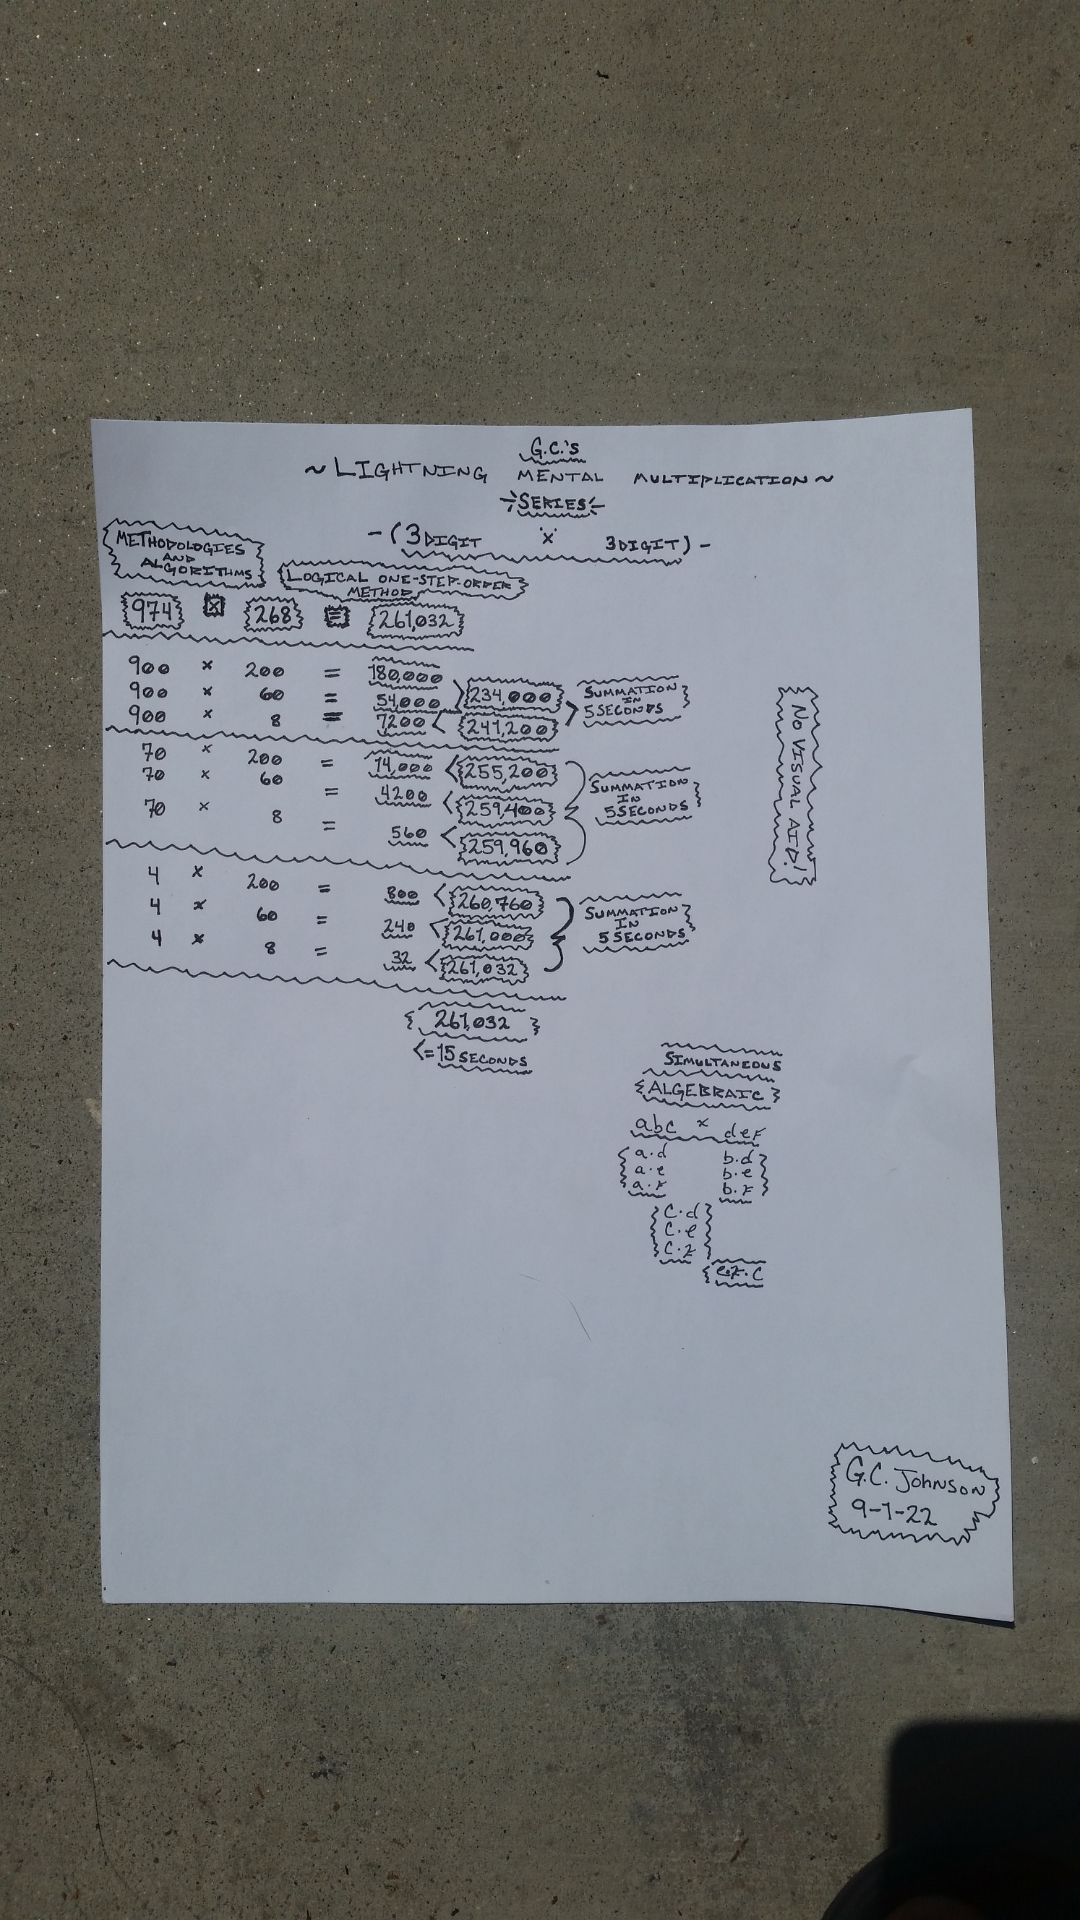 G.C.'s
~ LIGHTNING MENTAL MULTIPLICATION ~
SERIES
-(3 DIGIT "x" 3 DIGIT)-
METHODOLOGIES
AND
ALGORITHMS
LOGICAL ONE-STEP-ORDER
METHOD
974 x 268 = 261,032
900 x 200 = 180,000
900 x 60 = 54,000 234,000
900 x 8 = 7200 < 241,200
SUMMATION
IN
5 SECONDS
70 x 200 = 14,000 < 255,200
70 x 60 = 4200 < 259,400
70 x 8 = 560 < 259,960
SUMMATION
IN
5 SECONDS
4 x 200 = 800 < 260,760
4 x 60 = 240 < 261,000
4 x 8 = 32 < 261,032
SUMMATION
IN
5 SECONDS
261,032
<= 15 SECONDS
NO VISUAL AID!
SIMULTANEOUS
ALGEBRAIC
abc x def
a.d b.d
a.e b.e
a.f b.f
c.d
c.e
c.f
G.C. JOHNSON
9-1-22